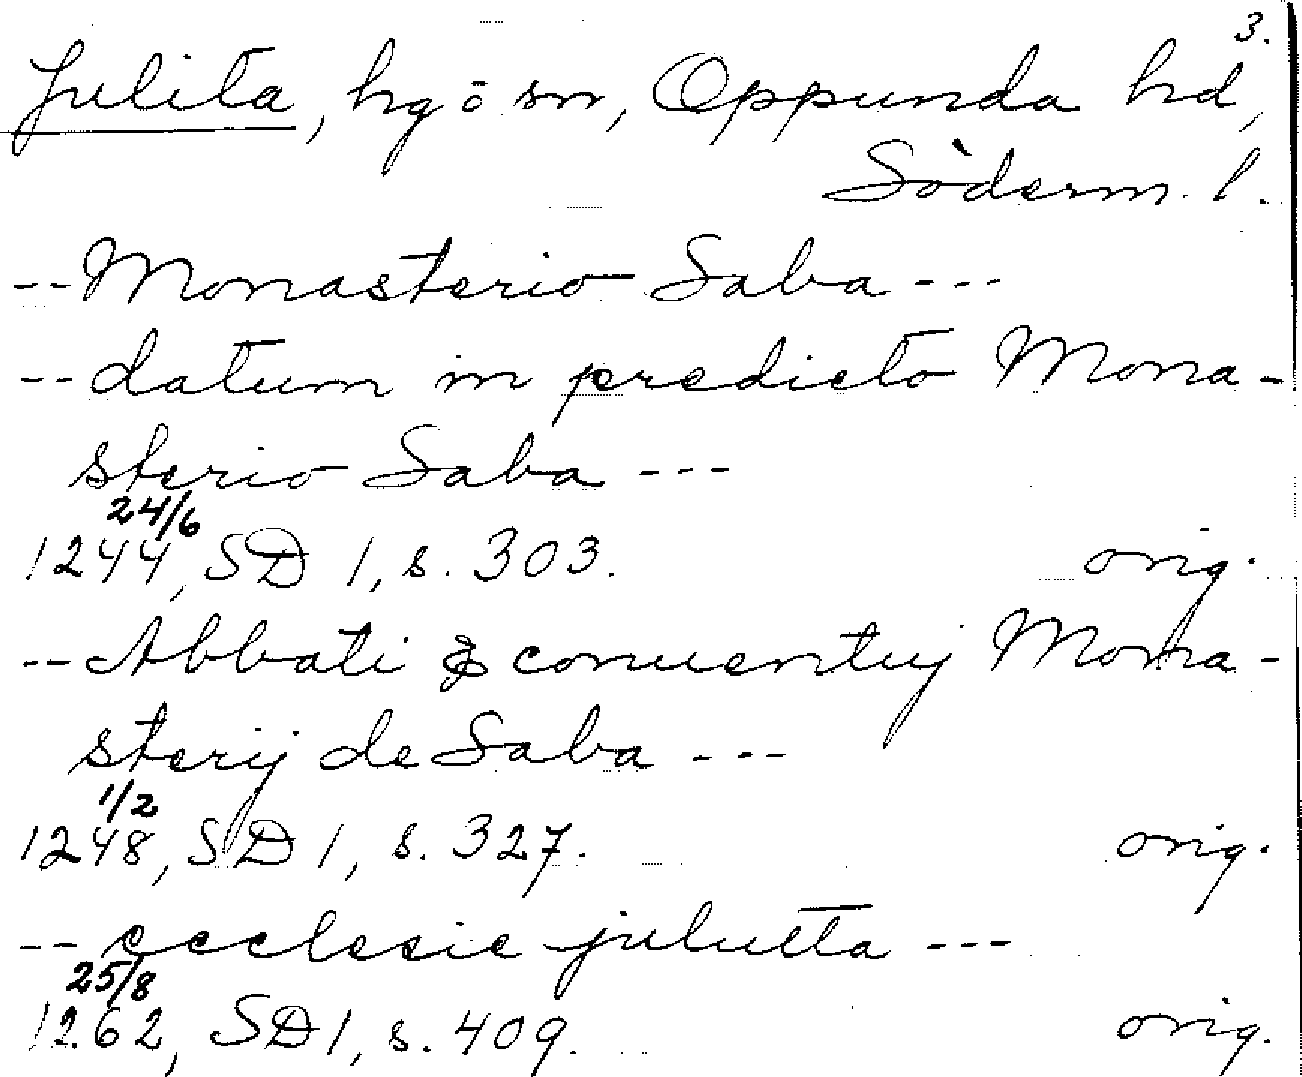 3.
Julita, hg o sn, Oppunda hd,
Söderm. l.
-- Monasterio Saba ---
-- datum in predicto Mona-
sterio Saba ---
24/6
1244, SD 1, s. 303. orig.
-- Abbati & conuentuj Mona-
sterij de Saba ---
1/2
1248, SD 1, s. 327. orig.
-- ecclesie julutta ---
25/8
1262, SD 1, s. 409. orig.